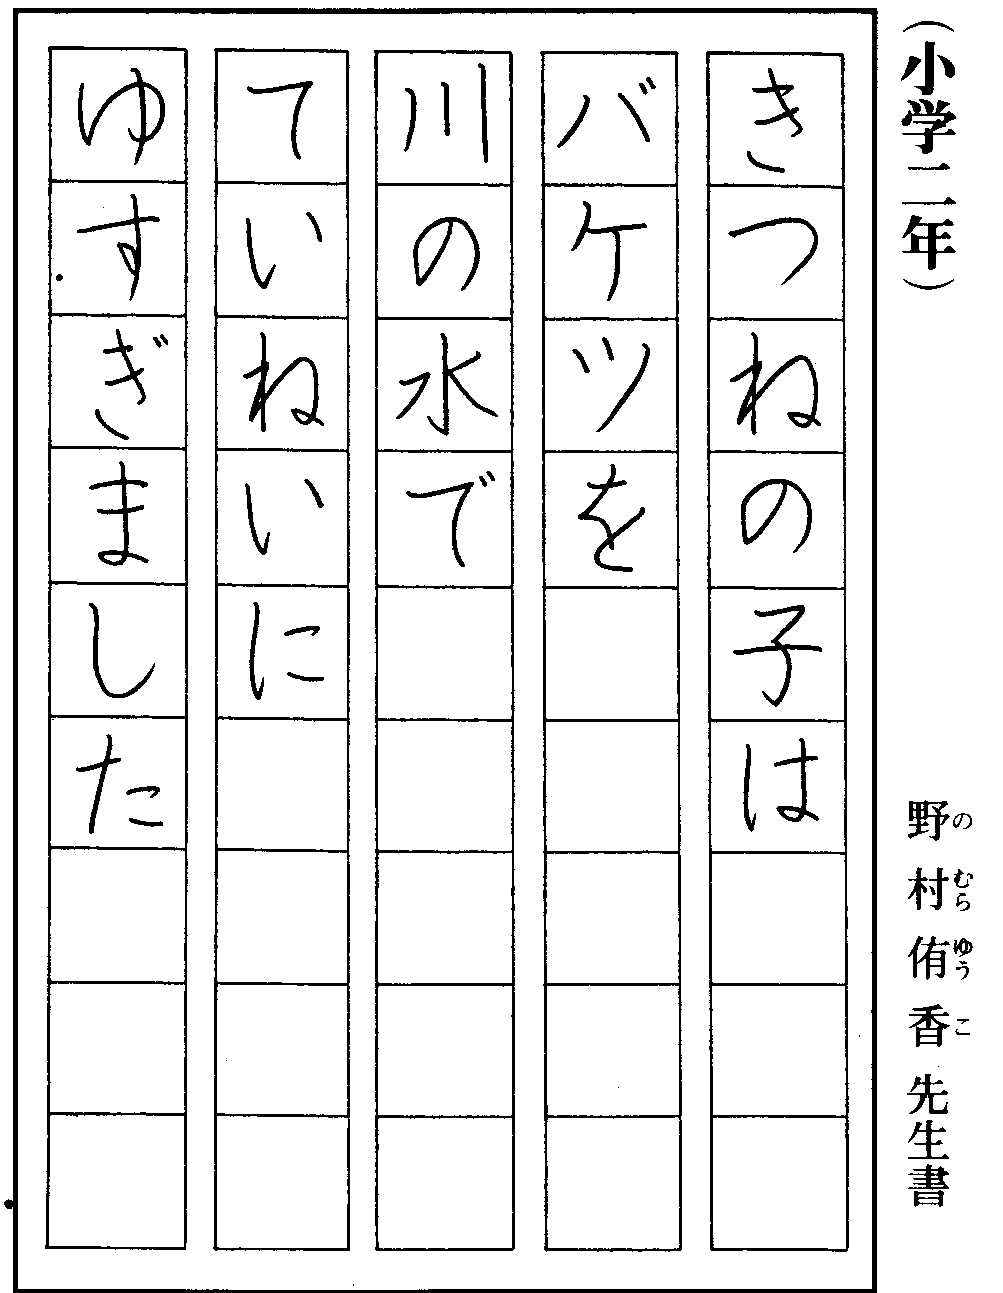 （小学二年）
野村侑香先生書
のむらゆうこ
きつねの子は
バケツを
川の水で
ていねいに
ゆすぎました